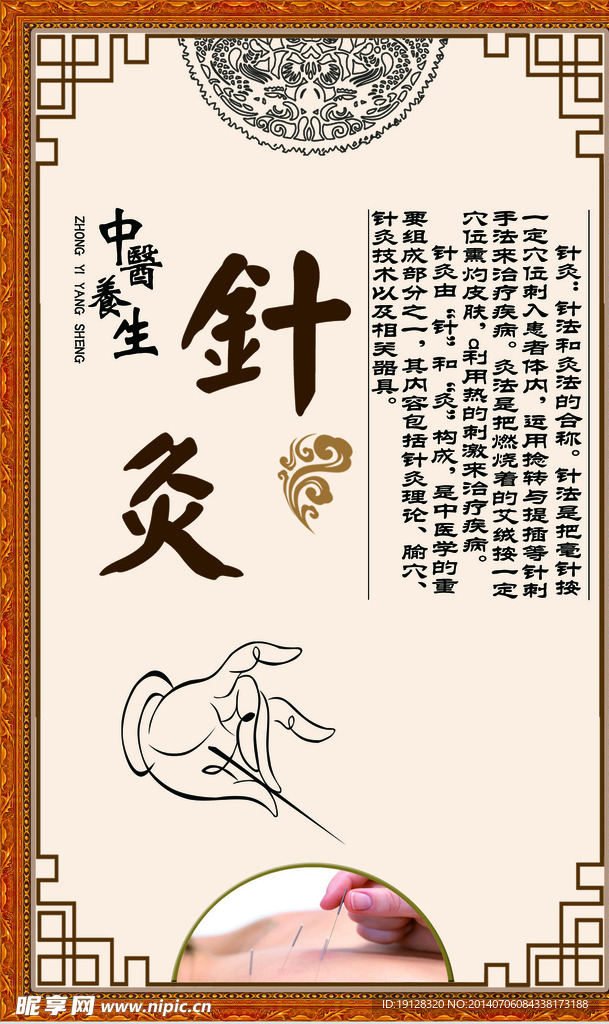 针灸：针法和灸法的合称。针法是把毫针按
一定穴位刺入患者体内，运用捻转与提插等针刺
手法来治疗疾病。灸法是把燃烧着的艾绒按一定
穴位熏灼皮肤，α利用热的刺激来治疗疾病。
针灸由“针”和“灸”构成，是中医学的重
要组成部分之一，其内容包括针灸理论、腧穴、
针灸技术以及相关器具。
針灸
中醫養生
ZHONG YI YANG SHENG
昵享网 www.nipic.cn
ID:19128320 NO:20140706084338173188